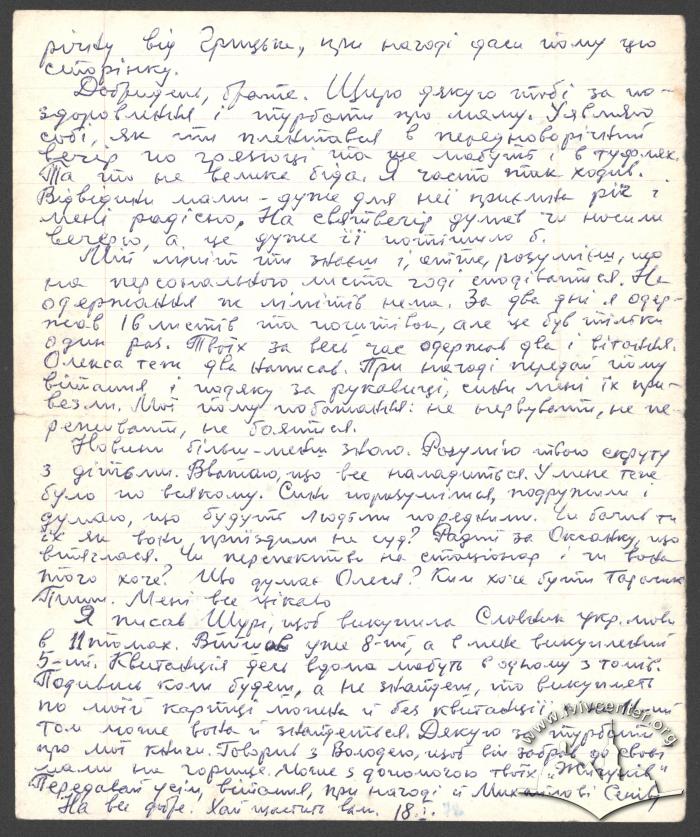 річку від Грицька, при нагоді даси йому цю
сторінку.
Добридень, брате. Щиро дякую тобі за по-
здоровлення і турботи про маму. Уявляю
собі, як ти плентався в передноворічний
вечір по грязюці та ще мабуть і в туфлях.
Та то не велика біда. Я часто так ходив.
Відвідини мами - дуже для неї приємна річ і
мені радісно. На святвечір думав чи носили
вечерю, а це дуже її потішило б.
Мій ліміт ти знаєш і, отже, розумієш, що
на персонального листа годі сподіватися. На
одержання ж лімітів нема. За два дні я одер-
жав 16 листів та поштівок, але це був тільки
один раз. Твоїх за весь час одержав два і вітання.
Олекса теж два написав. При нагоді передай йому
вітання і подяку за рукавиці, сини мені їх при-
везли. Мої йому побажання: не нервувати, не пе-
реживати, не боятися.
Новини більш-менш знаю. Розумію твою скруту
з дітьми. Вважаю, що все наладиться. У мене теж
було по всякому. Сини порозумнішали, подружили і
думаю, що будуть людьми порядними. Чи бачив ти
їх як вони приїздили на суд? Радий за Оксанку, що
втяглася. Чи перспектива на стаціонар і чи вона
того хоче? Що думає Олеся? Ким хоче бути Тарасик
Пиши. Мені все цікаво
Я писав Шурі, щоб викупила Словник укр. мови
в 11 томах. Вийшов уже 8-ий, а в мене викуплений
5-ий. Квитанція десь вдома мабуть в одному з томів.
Подивись коли будеш, а не знайдеш, то викуплять
по моїй картці можна й без квитанції, на 11-ий
том може вона й знайдеться. Дякую за турботи
про мої книги. Говорив з Володею, щоб він забрав од своєї
мами на горище. Може з допомогою твоїх „Жигулів"
Передавай усім вітання, при нагоді й Михайлові
На все добре. Хай щастить вам. 18.I.78
www.lvivcenter.org